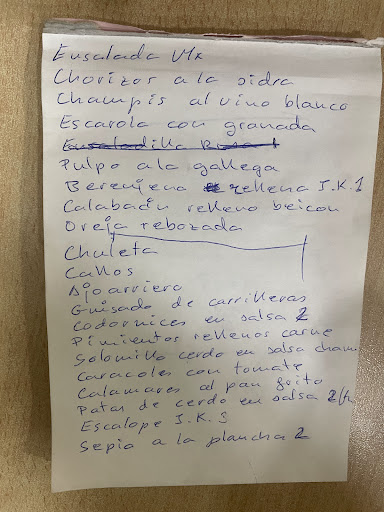 Ensalada Mx
Chorizos a la sidra
Champis al vino blanco
Escarola con granada
Ensaladilla
Pulpo a la gallega
Berenjena rellena J.K.1
Calabacín relleno beicon
Oreja rebozada
Chuleta
Callos
Ajoarriero
Guisado de carrilleras
Codornices en salsa 2
Pimientos rellenos carne
Solomillo cerdo en salsa cham
Caracoles con tomate
Calamares al pan frito
Patas de cerdo en salsa
Escalope J.K.S
Sepia a la plancha 2